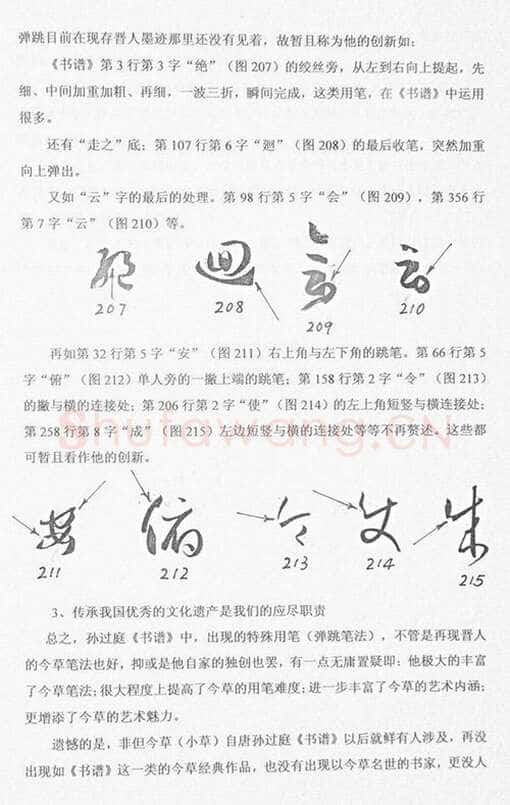 弹跳目前在现存晋人墨迹那里还没有见着，故暂且称为他的创新如：
《书谱》第3行第3字“绝”（图207）的绞丝旁，从左到右向上提起，先
细、中间加重加粗、再细，一波三折，瞬间完成，这类用笔，在《书谱》中运用
很多。
还有“走之”底；第107行第6字“迴”（图208）的最后收笔，突然加重
向上弹出。
又如“云”字的最后的处理。第98行第5字“会”（图209），第356行
第7字“云”（图210）等。
207
208
209
210
再如第32行第5字“安”（图211）右上角与左下角的跳笔。第66行第5
字“俯”（图212）单人旁的一撇上端的跳笔；第158行第2字“令”（图213）
的撇与横的连接处；第206行第2字“使”（图214）的左上角短竖与横连接处；
第258行第8字“成”（图215）左边短竖与横的连接处等等不再赘述。这些都
可暂且看作他的创新。
Shufawang.CN
211
212
213
214
215
3、传承我国优秀的文化遗产是我们的应尽职责
总之，孙过庭《书谱》中，出现的特殊用笔（弹跳笔法），不管是再现晋人
的今草笔法也好，抑或是他自家的独创也罢，有一点无庸置疑即：他极大的丰富
了今草笔法；很大程度上提高了今草的用笔难度；进一步丰富了今草的艺术内涵；
更增添了今草的艺术魅力。
遗憾的是，非但今草（小草）自唐孙过庭《书谱》以后就鲜有人涉及，再没
出现如《书谱》这一类的今草经典作品，也没有出现以今草名世的书家，更没人